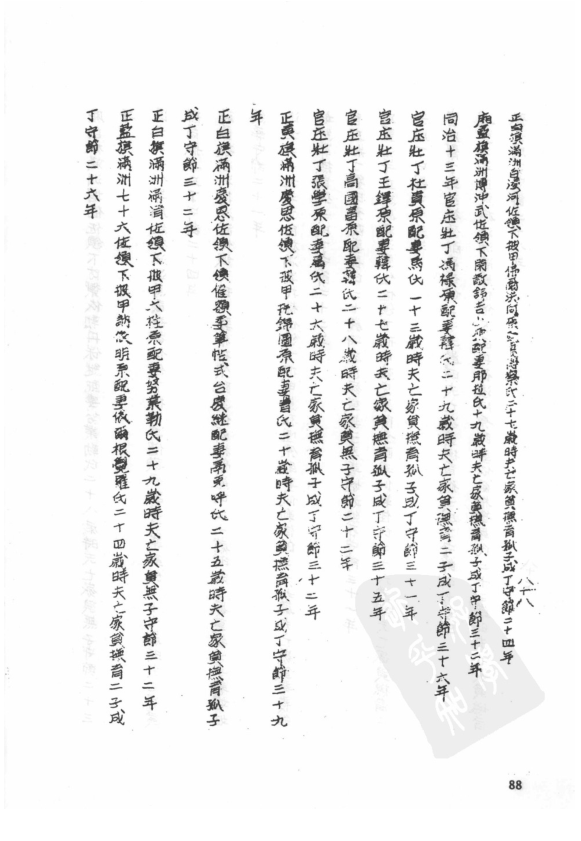 正白旗滿洲白凌河佐領下披甲佛爾洪阿原配妻博察氏二十七歲時夫亡家貧撫育孤子成丁守節二十四年
廂藍旗滿洲博冲武佐領下閑散錦台原配妻那拉氏十九歲時夫亡家貧撫育孤子成丁守節三十二年
同治十三年官庄壯丁馮祿原配妻韓氏二十九歲時夫亡家貧撫育二子成丁守節三十六年
官庄壯丁杜貴原配妻馬氏一十三歲時夫亡家貧撫育孤子成丁守節三十一年
官庄壯丁王鐸原配妻韓氏二十七歲時夫亡家貧撫育孤子成丁守節三十五年
官庄壯丁高國富原配妻韓氏二十八歲時夫亡家貧無子守節二十二年
官庄壯丁張學原配妻萬氏二十六歲時夫亡家貧撫育孤子成丁守節三十二年
正黃旗滿洲慶思佐領下披甲托錦圖原配妻曹氏二十歲時夫亡家貧撫育孤子成丁守節三十九
年
正白旗滿洲慶恩佐領下領催額委筆帖式台慶繼配妻兩克呼氏二十五歲時夫亡家貧撫育孤子
成丁守節三十二年
正白旗滿洲滿肩佐領下披甲六柱原配妻努葉勒氏二十九歲時夫亡家貧無子守節三十二年
正藍旗滿洲七十六佐領下披甲納欽明原配妻依爾根覺羅氏二十四歲時夫亡家貧撫育二子成
丁守節二十六年
八十八
88